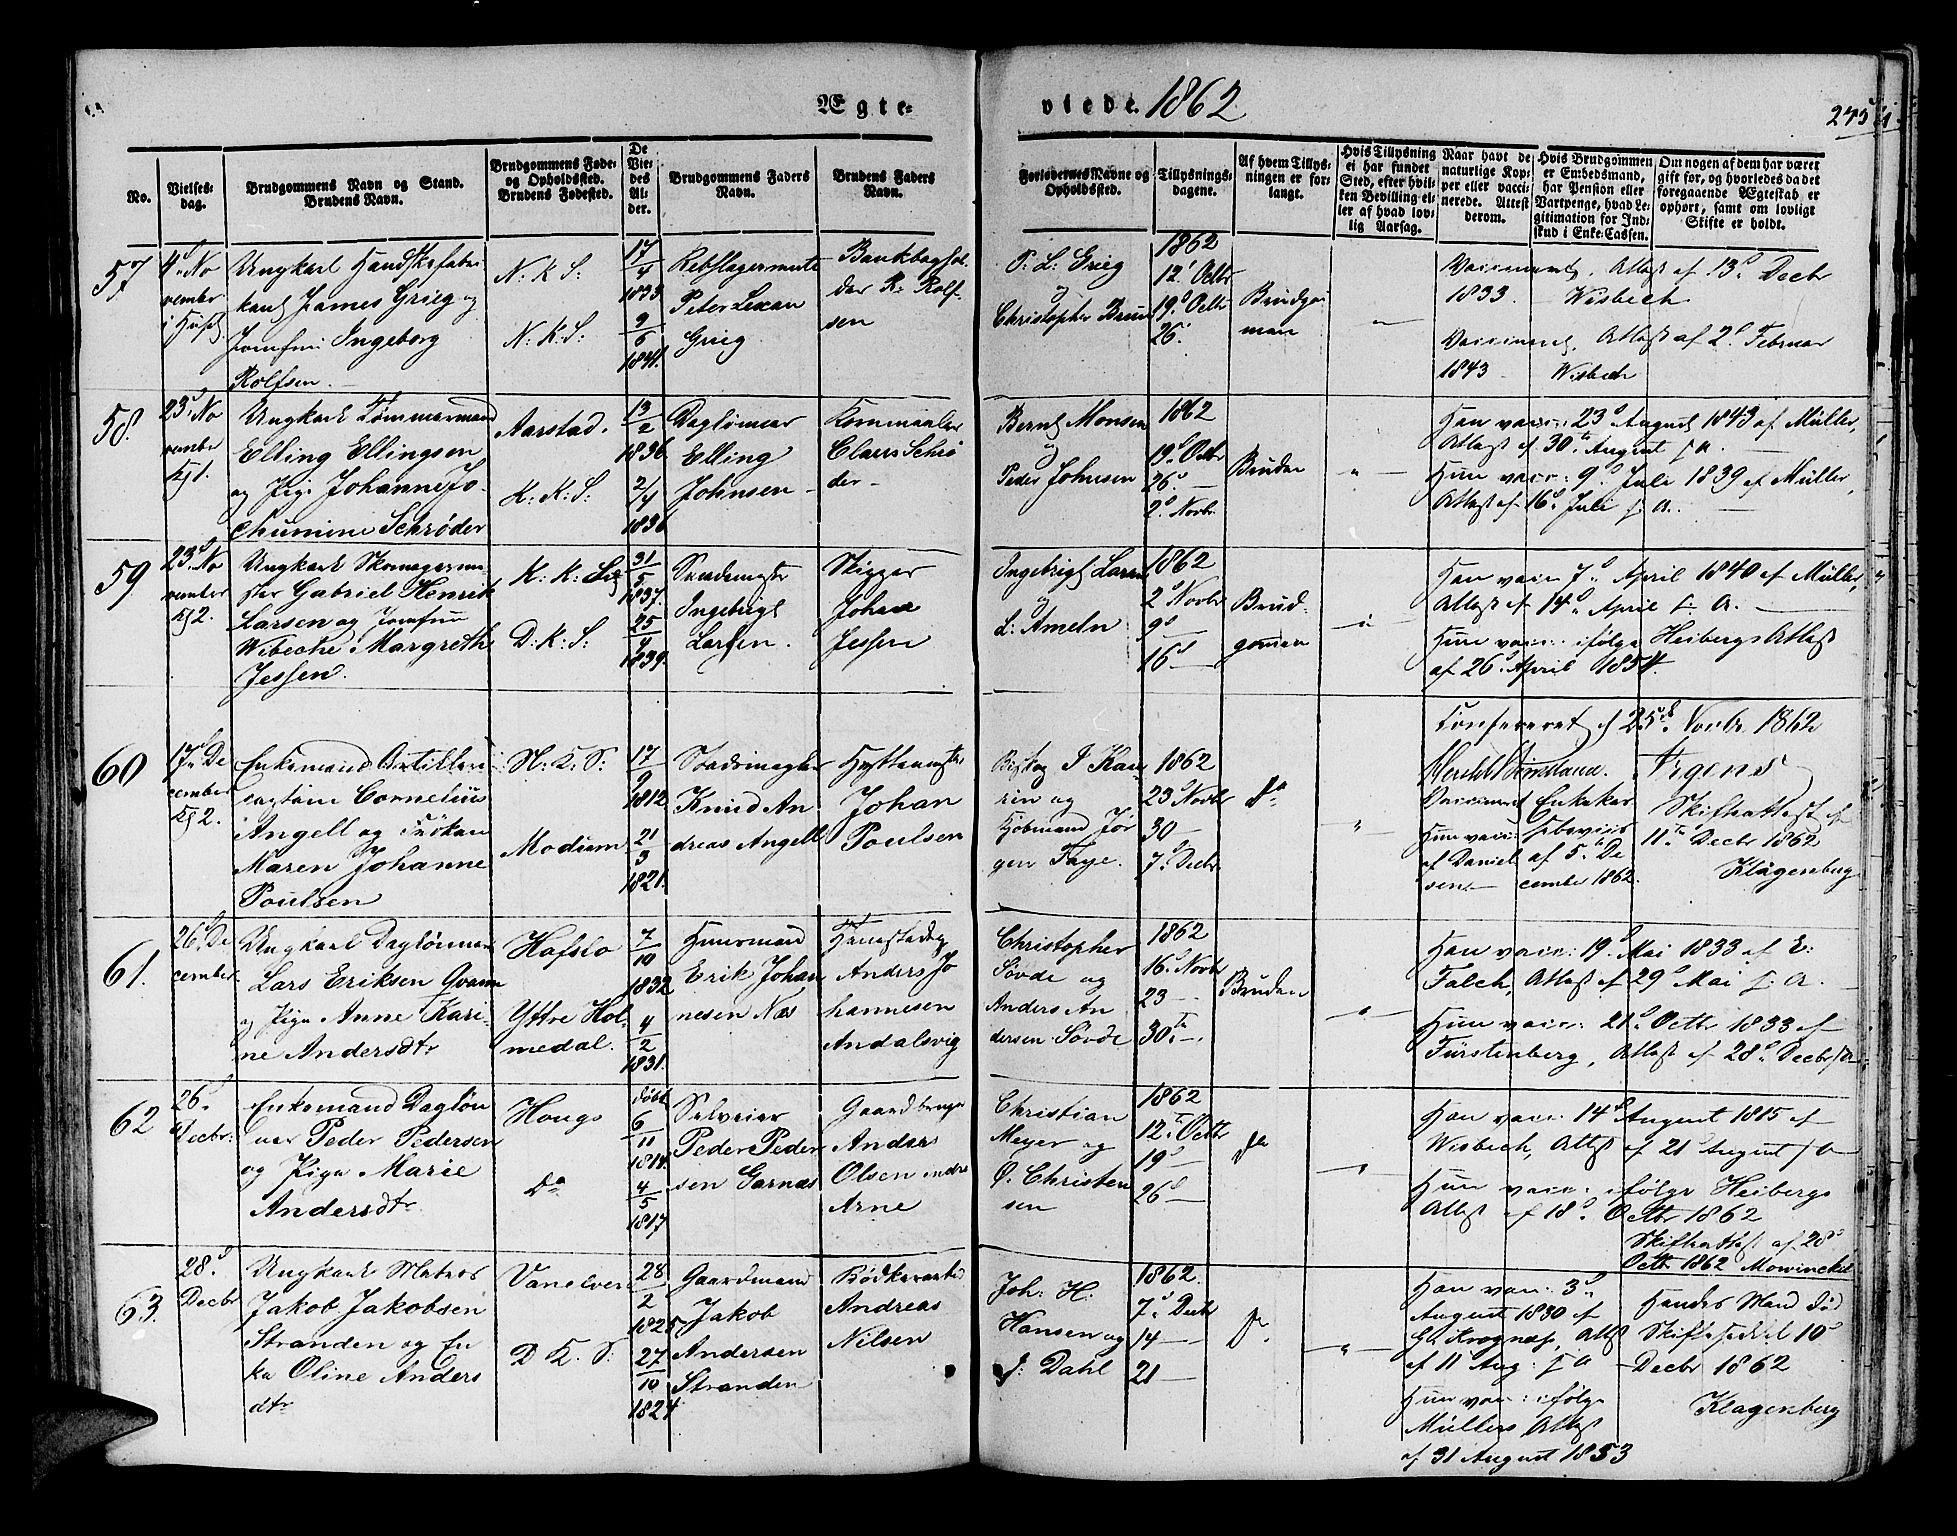 Ægte-
viede. 1862
245
No.
Vielses-
dag.
Brudgommens Navn og Stand.
Brudens Navn.
Brudgommens Føde-
og Opholdssted.
Brudens Fødested.
De
Vie-
des
Al-
der.
Brudgommens Faders
Navn.
Brudens Faders
Navn.
Forlovernes Navne og
Opholdssted.
Tillysnings-
dagene.
Af hvem Tillys-
ningen er for-
langt.
Hvis Tillysning
ei har fundet
Sted, efter hvil-
ken Bevilling el-
ler af hvad lov-
lig Aarsag.
Naar havt de
naturlige Kop-
per eller vacci-
nerede. Attest
derom.
Hvis Brudgommen
er Embedsmand,
har Pension eller
Vartpenge, hvad Le-
gitimation for Ind-
skud i Enke-Cassen.
Om nogen af dem har været
gift før, og hvorledes da det
foregaaende Ægteskab er
ophørt, samt om lovligt
Skifte er holdt.
57
4d No
vember
i Huset
Ungkarl Handskefabri
kant James Grieg og
Jomfru Ingeborg
Rolfsen.
N: K: S:
N: K: S:
17
4
1833.
9
6
1841.
Rebslagermester
Peter Lexau
Grieg
Bankboghol
der R: Rolf
sen
P: L: Grieg
og
Christopher Bruun
1862
12' Octbr
19d Octbr
26.
Brudgom
man
"
Vaccineret, Attest af 13d Decbr
1833. — Wisbech
Vaccineret, Attest af 2d Februar
1843 — Wisbech
58.
23d No
vember
Kg 1.
Ungkarl Tømmermand
Elling Ellingsen
og Pige Johanne Jo-
chumine Schrøder
Aarstad.
K: K: S:
13
2
1836.
2/4
1836
Dagleiner
Elling
Johnsen
Claus Schrø
der
Bernt Monsen
og
Peder Johnsen
1862
19d Octbr
26d —
2d Novbr
Bruden
"
Han vacc: 23d August 1843 af Müller,
Attest af 30te August s. A.
Hun vacc: 9d Juli 1839 af Müller,
Attest af 16d Juli s. A. —
59
23d No
vember
Kg 2.
Ungkarl Skomagerme
ster Gabriel Henrik
Larsen og Jomfru
Wibeche Margrethe
Jessen.
D: K: S:
31
5
1837.
25
4
1839.
Ingebrigt
Larsen.
Skipper
Johan
Jessen
Ingebrigt Larsen
og
L: Ameln
1862
2d Novbr
9d
16d —
Brud-
gomen
Han vacc: 7d April 1840 af Müller,
Attest af 14d April s. A. —
Hun vacc: ifølge Heibergs Attest
af 26d April 1854.
60
17d De
cember
Kg 2.
Enkemand Artilleri
captain Cornelius
Angell og Frøken
Maren Johanne
Poulsen
N: K: S:
Modum
17
9
1812.
21
3
1821.
Stadsmægler
Knud An
dreas Angell
Hyttemester
Johan
Poulsen
Biskop J Kau
rin og
Kjøbmand Jør
gen Faye.
1862
23d Novbr
30 —
7d Decbr
do
"
Confereret af 25de Novbr 1862
Vaccineret
Hun vacc:
af Daniel
sen.
Enkekas
sebeviis
af 5te De
cember 1862.
Skifteattest af
11te Decbr 1862
Klagenberg
61.
26d De
cember
Ungkarl Dagleiner
Lars Eriksen Qvamm
og Pige Anne Kari-
ne Andersdtr
Hafslo
Yttre Hol-
medal.
7
10
1832
4
2
1831.
Huusmand
Erik Johan
nesen Næs
Anders Jo
hannesen
Andalsvig
Christopher
Søvde og
Anders An
dersen Søvde
1862
16d Novbr
23 —
30te —
Bruden
"
Han vacc: 19d Mai 1833 af E:
Falch, Attest af 29d Mai s: A. —
Hun vacc: 21d Octbr 1833 af
Fürstenberg, Attest af 28d Decbr s A
62
26d
Decbr:
Enkemand Dagløn
ner Peder Pedersen
og Pige Marie
Andersdtr.
Hougs
do
døbt
6
11
1814.
4
5
1817
Selveier
Peder Peder
sen Garnæs
Gaardbruger
Anders
Olsen indre
Arne
Christian
Meyer og
O. Christen
sen
1862
12te Octbr
19d —
26d —
do
"
Han vacc: 14d August 1815 af
Wisbech, Attest af 21d August s A
Hun vacc: ifølge Heibergs
Attest af 18d Octbr 1862
Skifteattest af 28d
Octb. 1862 Mowinckel
63.
28d
Decbr
Ungkarl Matros
Jakob Jakobsen
Stranden og En
ke Oline Anders
dtr
Vanelven
D K. S:
28
2
1825
27
10
1824
Gaardmand
Jakob
Andersen
Stranden
Bødkersvend
Andreas
Nilsen
Joh: H:
Hansen og
J: Dahl
1862.
7d Decbr
14 —
21 —
do
"
Han vac: 3d
August 1830 af
Gl Krognæss, Attest
af 11 Aug: s A
Hun vacc: ifølge
Müllers Attest
af 31 August 1853
Hendes Mand død
Skifteseddel 10d
Decbr 1862
Klagenberg